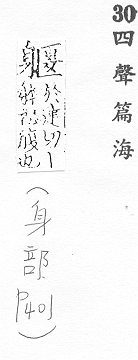 30 四聲篇海
於建切
腹也
(身部 P401)